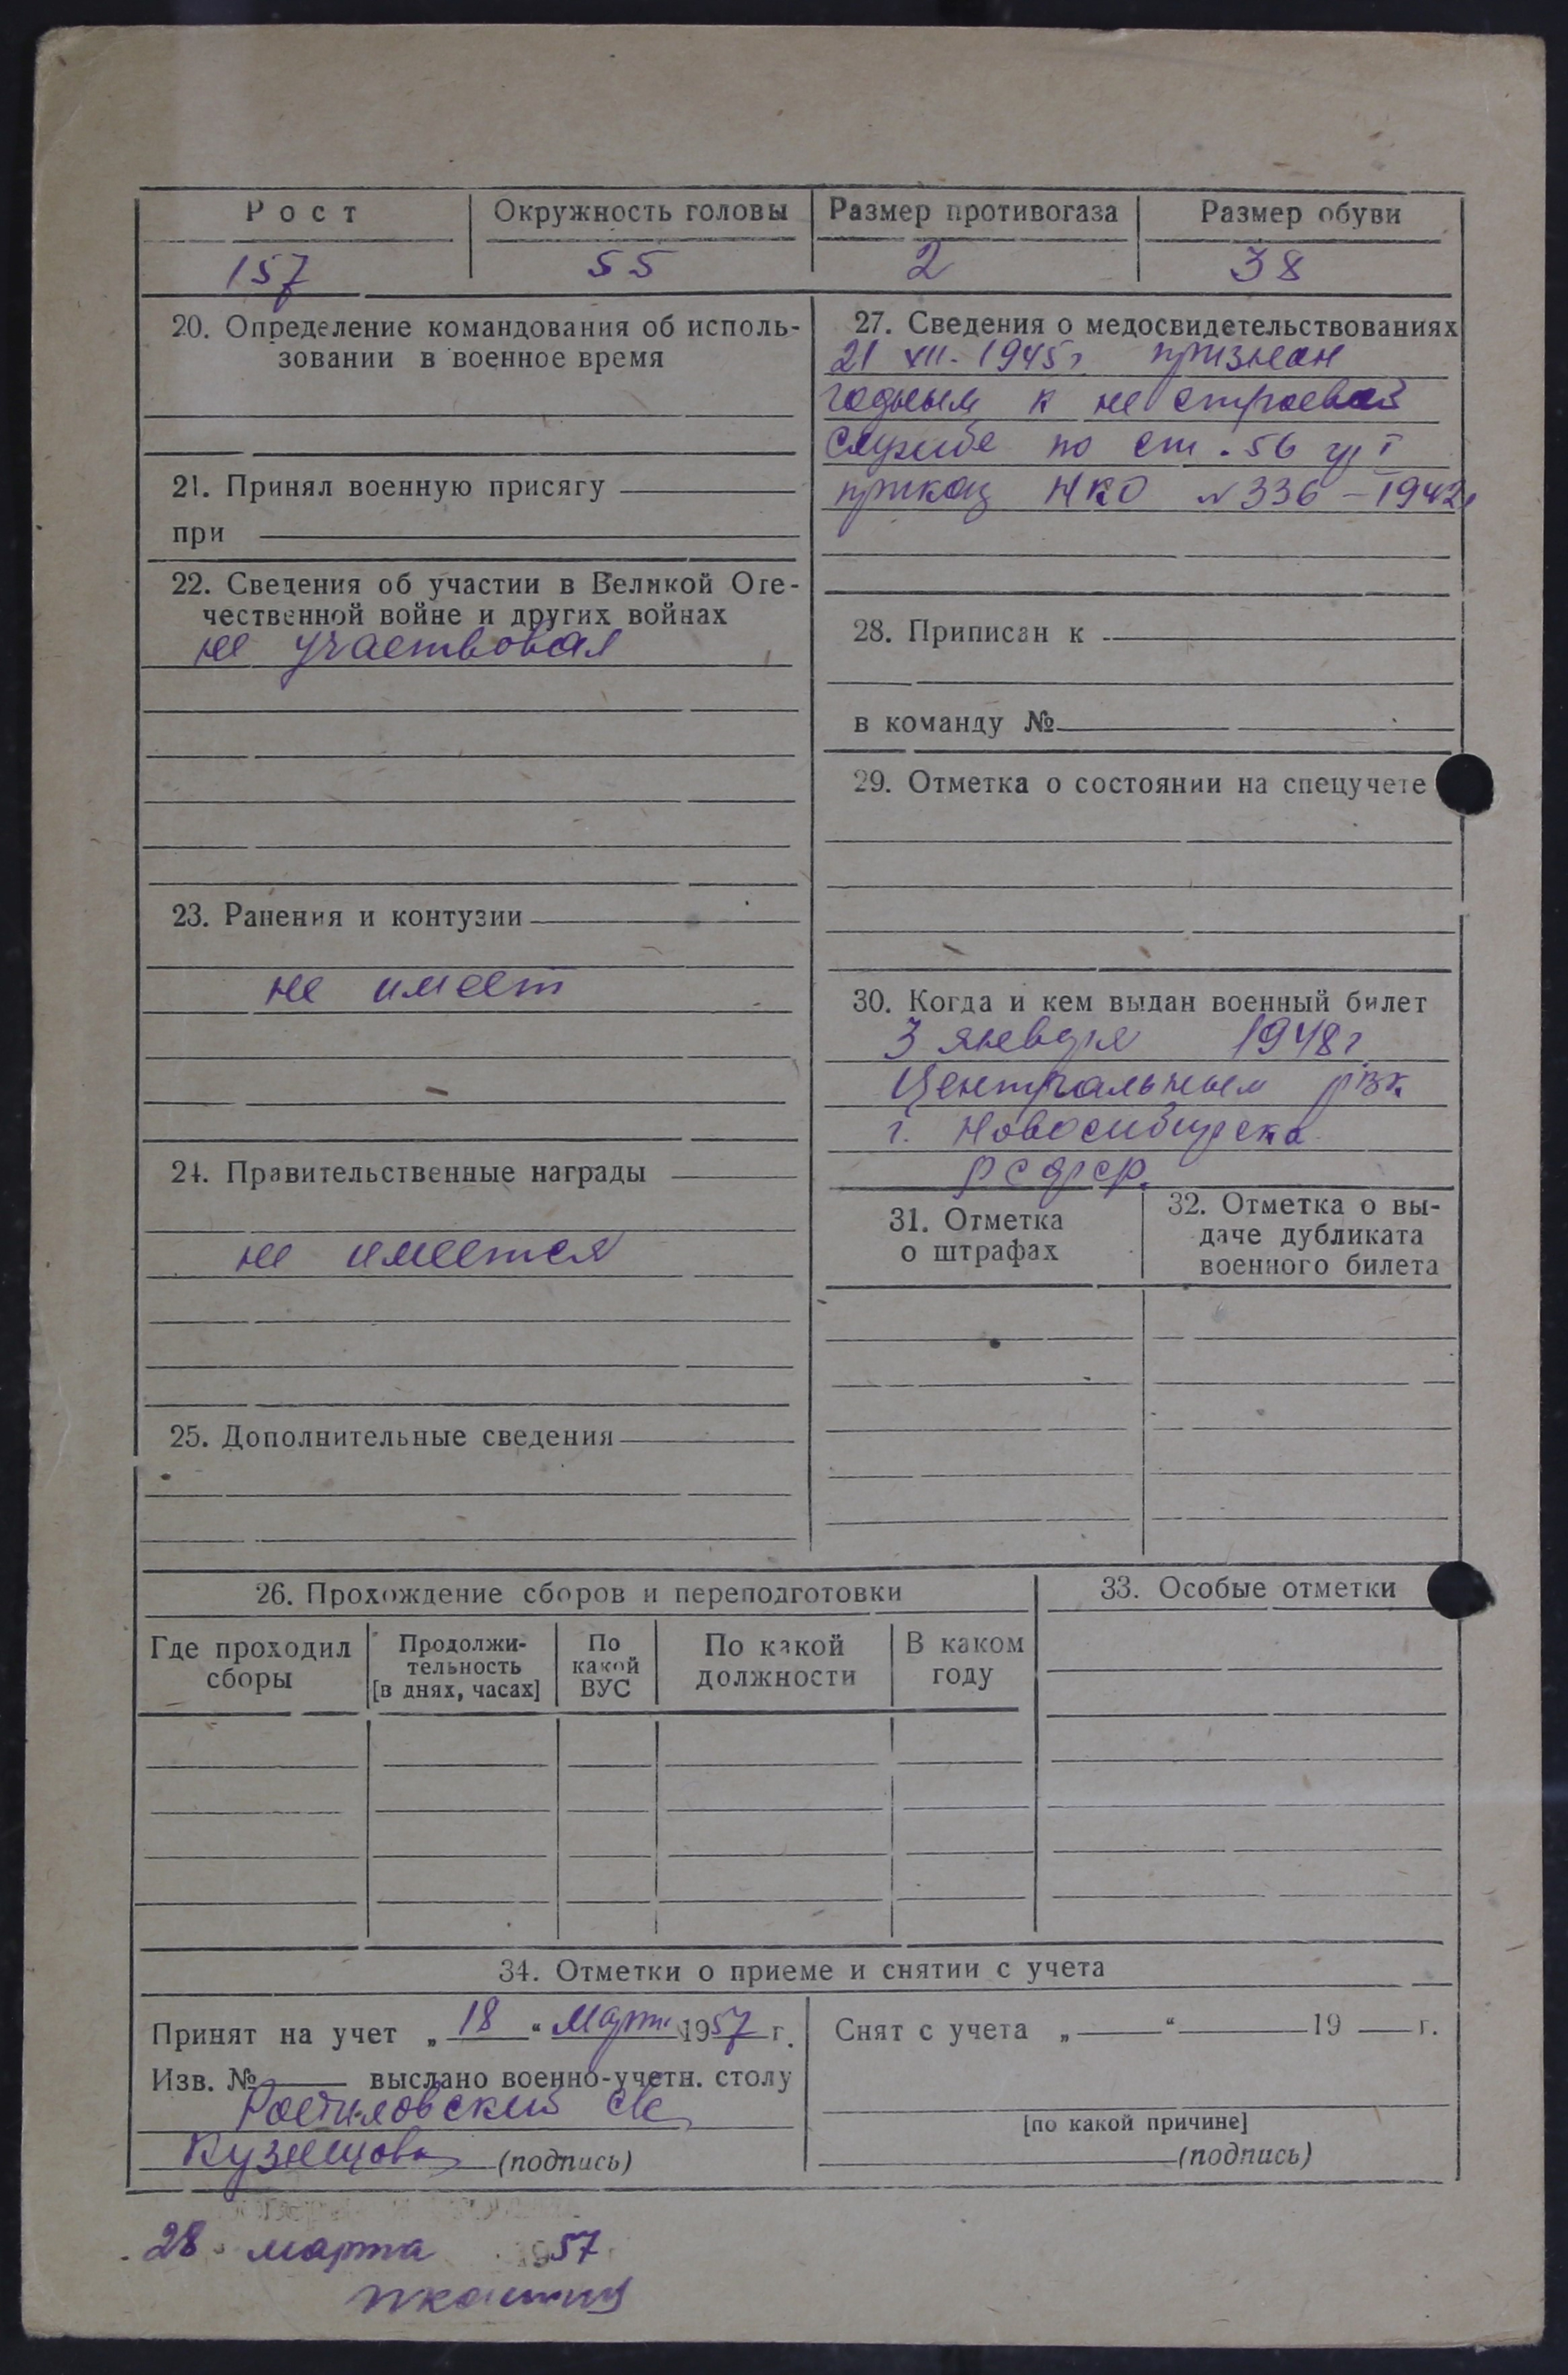 Рост Окружность головы Размер противогаза Размер обуви
157 55 2 38
20. Определение командования об исполь-
зовании в военное время
21. Принял военную присягу
при
22. Сведения об участии в Великой Оте-
чественной войне и других войнах
не участвовал
23. Ранения и контузии
не имеет
24. Правительственные награды
не имеется
25. Дополнительные сведения
27. Сведения о медосвидетельствованиях
21 XII - 1945 г признан
годным к не строевой
службе по ст. 56 гр I
приказ НКО № 336 - 1942г
28. Приписан к
в команду №
29. Отметка о состоянии на спецучете
30. Когда и кем выдан военный билет
3 января 1948 г
Центральным рвк
г. Новосибирска
РСФСР.
31. Отметка
о штрафах
32. Отметка о вы-
даче дубликата
военного билета
26. Прохождение сборов и переподготовки
Где проходил
сборы
Продолжи-
тельность
[в днях, часах]
По
какой
ВУС
По какой
должности
В каком
году
33. Особые отметки
34. Отметки о приеме и снятии с учета
Принят на учет „ 18 “ Марта 1957 г.
Изв. № выслано военно-учетн. столу
Кузнецова (подпись)
Снят с учета „ “ 19 г.
[по какой причине]
(подпись)
28 марта 1957